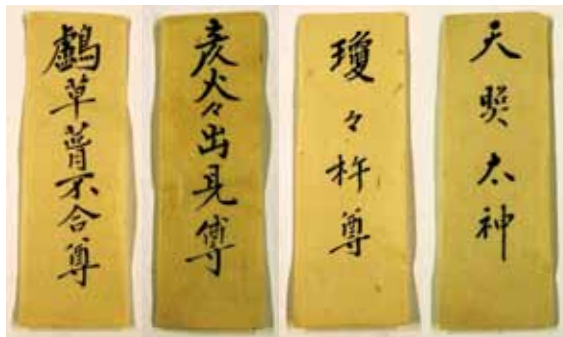 天照太神
瓊々杵尊
彦火々出見尊
鸕草葺不合尊